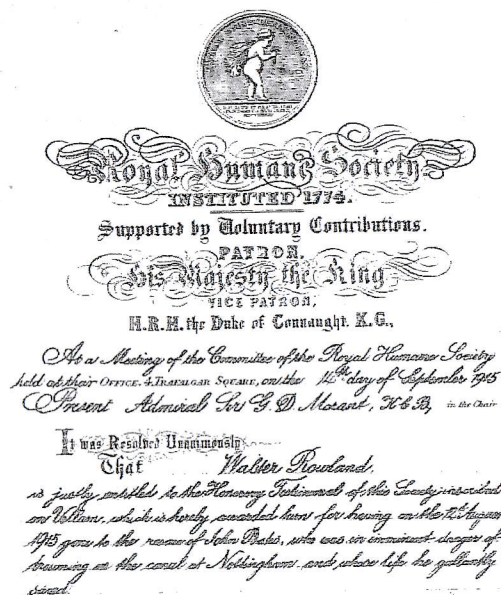 Royal Humane Society
INSTITUTED 1774.
Supported by Voluntary Contributions.
PATRON,
His Majesty the King
VICE PATRON,
H.R.H. the Duke of Connaught. K.G.,
At a Meeting of the Committee of the Royal Humane Society
held at their OFFICE. 4. TRAFALGAR SQUARE, on the 14th day of September 1915
Present Admiral Sir G. D. Morant, K C B, in the Chair
It was Resolved Unanimously
That Walter Rowland,
is justly entitled to the Honorary Testimonial of this Society inscribed
on Vellum, which is hereby awarded him for having on the 12th August
1915 gone to the rescue of John Bates, who was in imminent danger of
drowning in the canal at Nottingham. and whose life he gallantly
saved.